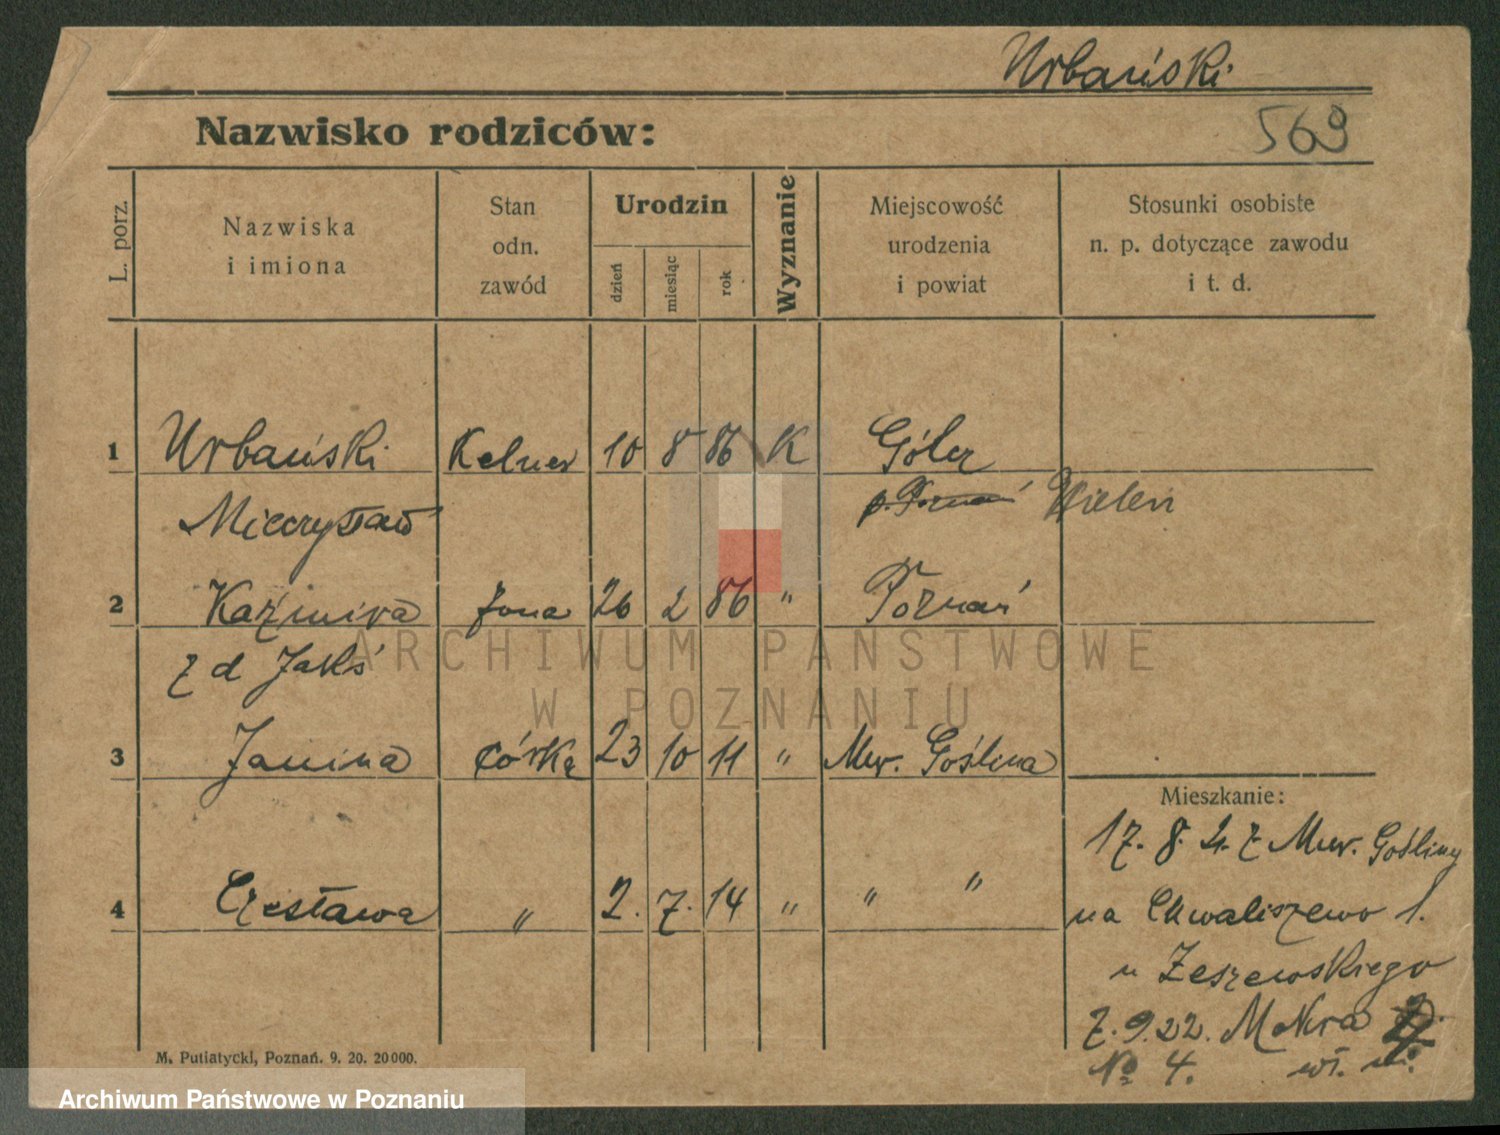 Urbański
569
Nazwisko rodziców:
L. porz.
Nazwiska
i imiona
Stan
odn.
zawód
Urodzin
dzień
miesiąc
rok
Wyznanie
Miejscowość
urodzenia
i powiat
Stosunki osobiste
n. p. dotyczące zawodu
i t. d.
1 Urbański Kelner 10 8 86 K
Mieczysław p. Poznań Wieleń
2 Kaźmira żona 26 2 86 " Poznań
z d Jakś
3 Janina córka 23 10 11 " Mur. Goślina
Mieszkanie:
17. 8. 21. z Mur. Gośliny
4 Czesława " 2. 7. 14 " " "
na Chwaliszewo 1.
u Zeszewskiego
7. 9. 22.
No 4. wł. m.
M. Putiatycki, Poznań. 9. 20. 20000.
ARCHIWUM PAŃSTWOWE
W POZNANIU
Archiwum Państwowe w Poznaniu